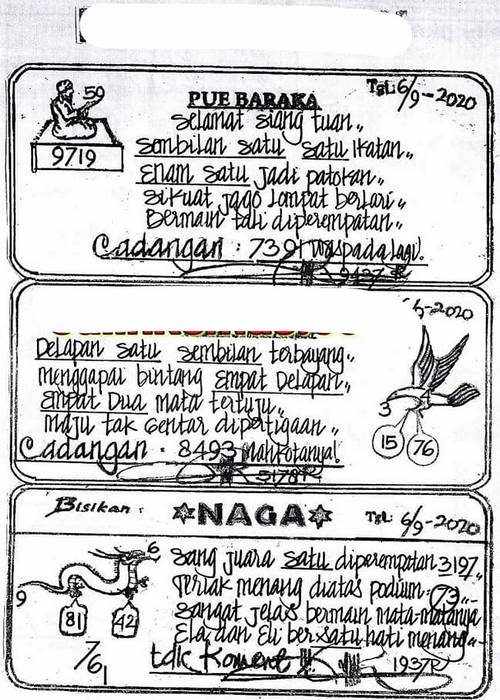 Tgl. 6/9-2020
50
9719
PUE BARAKA
Selamat siang tuan,,
sembilan satu satu ikatan,,
Enam satu jadi patokan,,
sikuat jago lompat berlari,,
Bermain tali diperempatan,,
Cadangan : 7391 waspada lagi!
9437 R
-2020
Delapan satu sembilan terbayang,,
menggapai bintang empat Delapan,,
empat Dua mata tertuju,,
maju tak Gentar dipertigaan,,
Cadangan : 8493 mahkotanya!
5178 R
3
15 76
Bisikan : NAGA Tgl. 6/9-2020
6
9
81 42
7/6
1
Sang juara satu diperempatan 3197,,
Teriak menang diatas podium (73),,
Sangat jelas bermain mata-matanya
Ela dan Eli bersatu hati menang,,
tdk Koment
1937 R